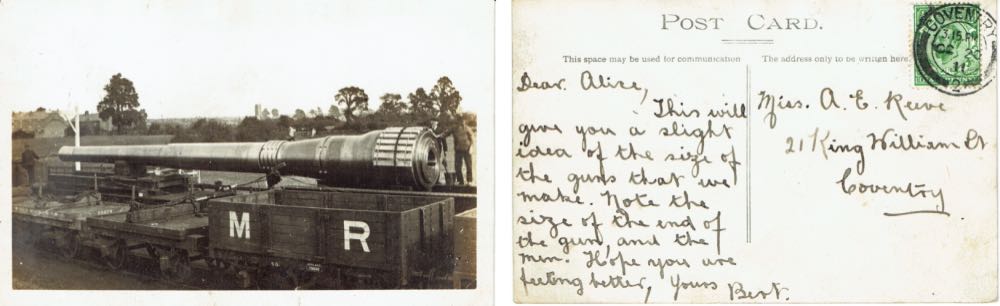 M R
POST CARD.
This space may be used for communication
The address only to be written here.
COVENTRY
3.15 PM
11
Dear Alice,
This will
give you a slight
idea of the size of
the guns that we
make. Note the
size of the end of
the gun, and the
men. Hope you are
feeling better, Yours Bert.
Miss. A. E. Reeve
21 King William St
Coventry